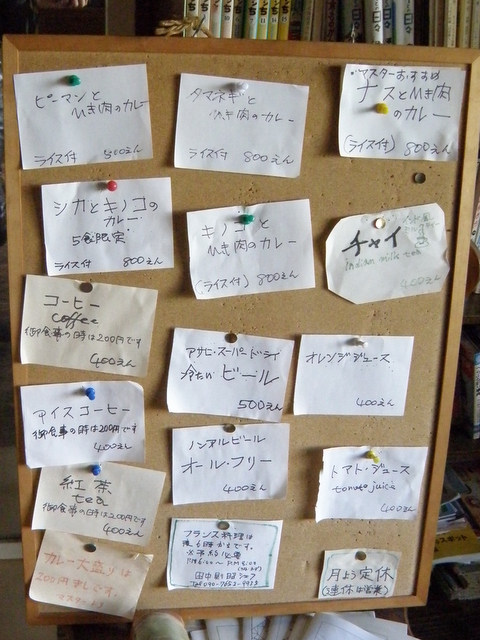 ピーマンと
ひき肉のカレー
ライス付
タマネギと
ひき肉のカレー
ライス付 800えん
マスターおすすめ
ナスとひき肉
のカレー
(ライス付) 800えん
シカとキノコの
カレー
5食限定
ライス付 800えん
キノコと
ひき肉のカレー
(ライス付) 800えん
チャイ
indian milk tea
400えん
コーヒー
coffee
御食事の時は200円です
400えん
アサヒ・スーパードライ
冷たいビール
500えん
オレンジジュース
400えん
アイスコーヒー
御食事の時は200円です
400えん
ノンアルビール
オール・フリー
400えん
トマト・ジュース
tomato juice
400えん
紅茶
tea
御食事の時は200円です
400えん
カレー大盛りは
200円ましです。
フランス料理は
夜6時からです。
※予約必要
田中
月よう定休
(連休は営業)